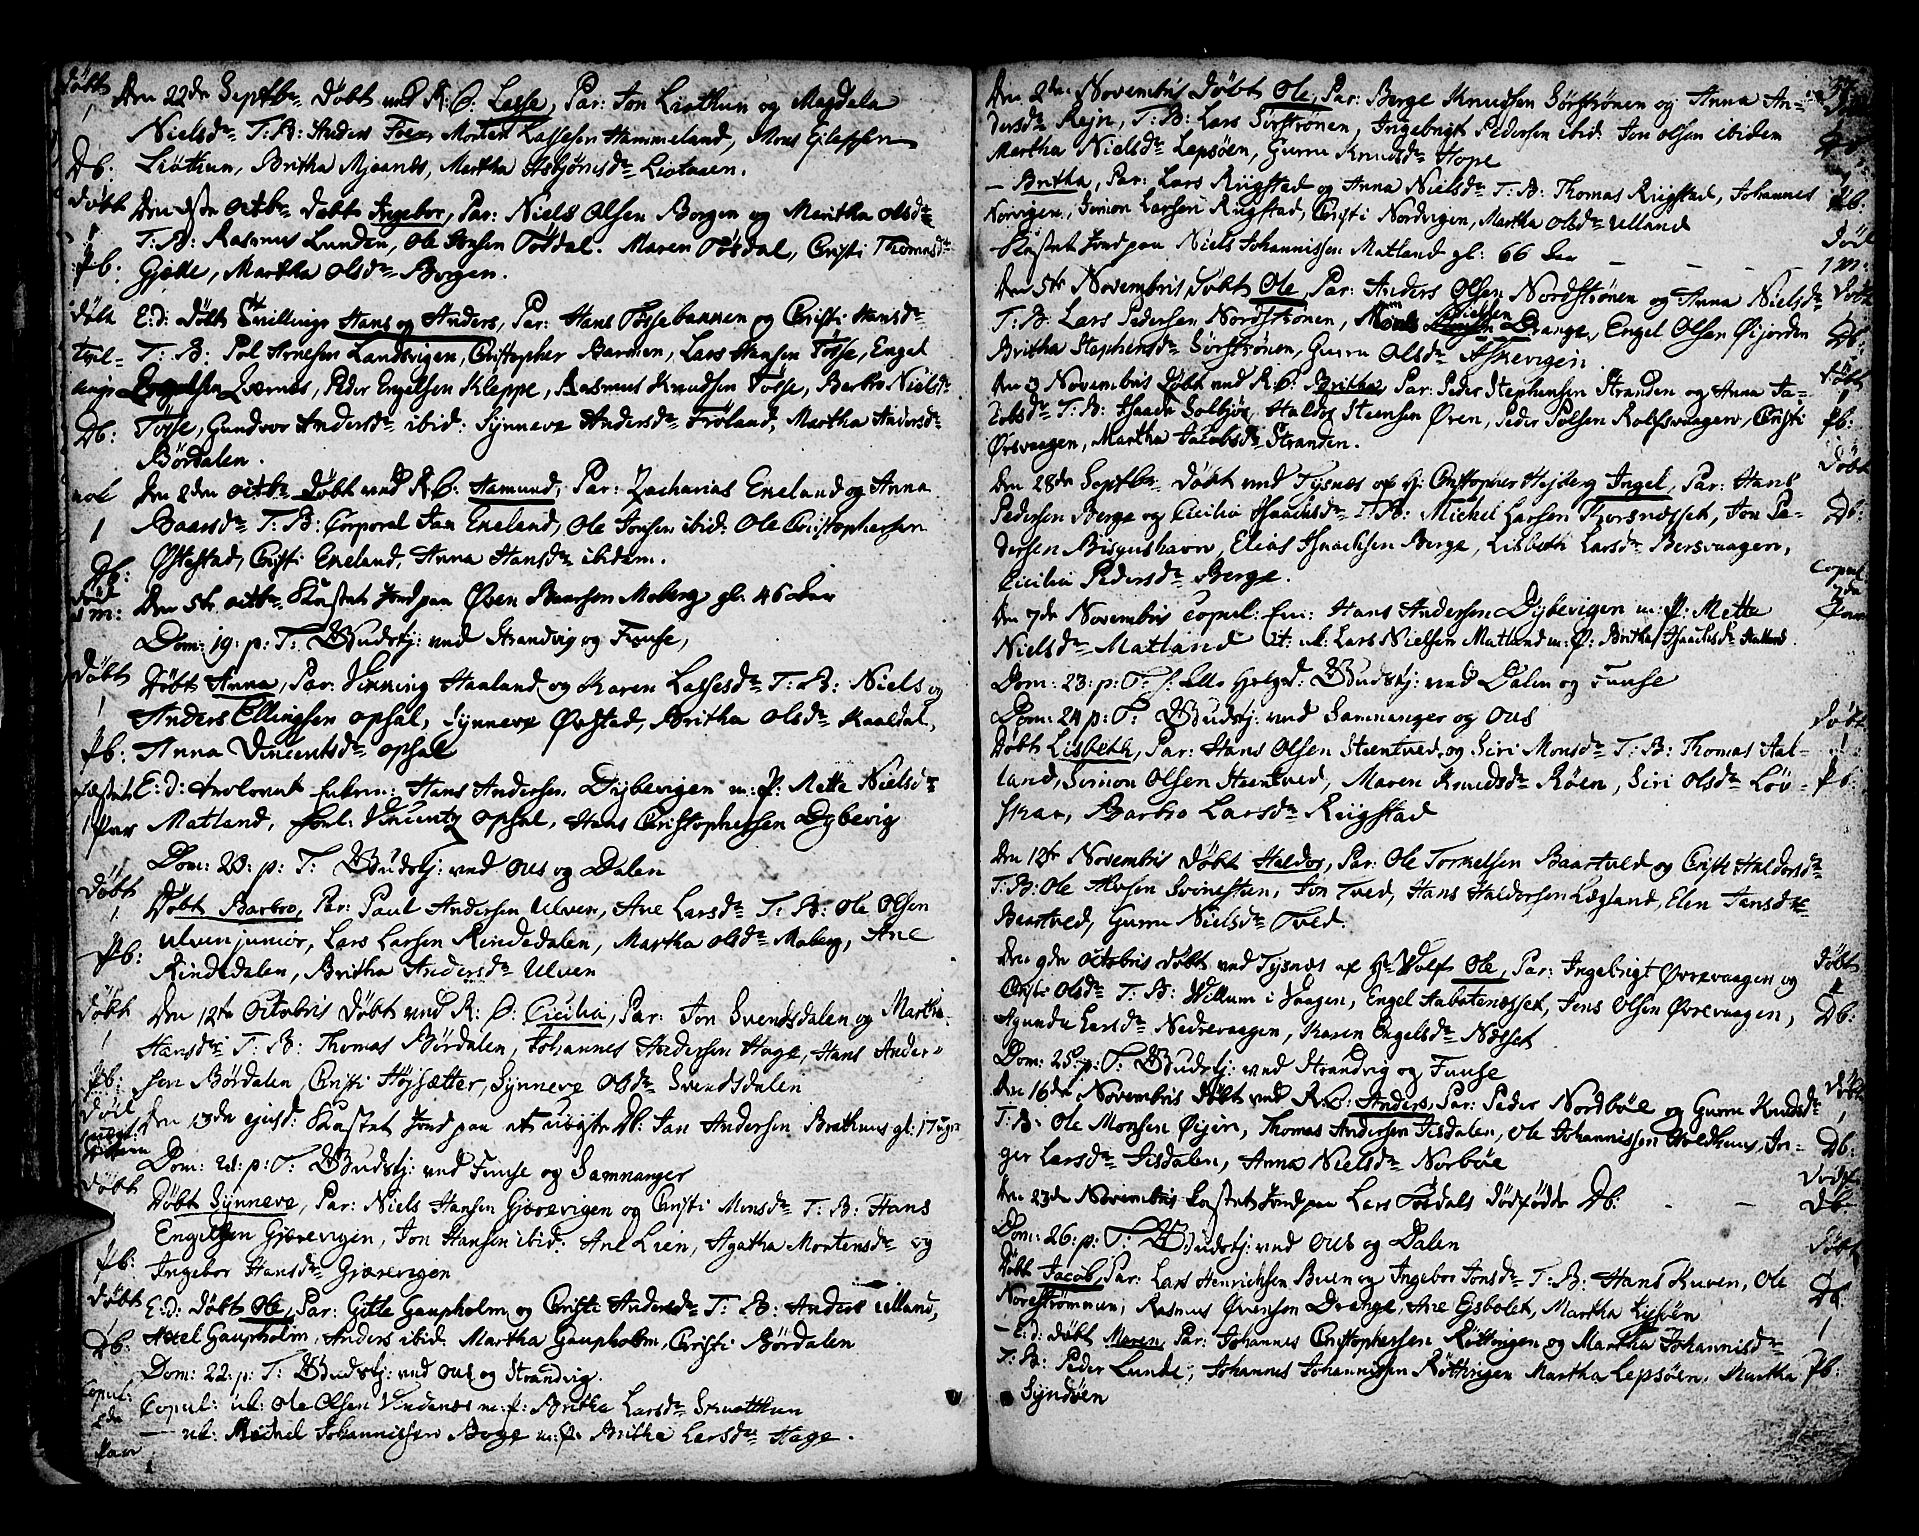 Døbt Den 22de Septbr. Døbt ved R. C. Lasse, Par: Jon Liothun og Magdela
1 Nielsdr T: B: Anders Foer, Morten Lassesen Hammeland, Mons
Db: Liothun, Britha Mjaanes, Martha Asbjørnsdr Liotaaen.
Døbt Den 1ste Octbr. Døbt Ingebor, Par: Niels Olsen Borgen og Maritha Olsdr
1 T: B: Rasmus Lunden, Ole Tøsdal. Maren Tøsdal, Cristi Thomasdr
Pb: Gjelle, Martha Olsdr Borgen.
Døbt E: d: Døbt Et Tvillinge Hans og Anders, Par: Hans Tøssebannen og Cristi Hansdr
tvil- T: B: Pol Arnesen Landvigen, Christopher Barmen, Lars Hansen Tøsse, Engel
linge Lernes, Peder Engelsen Kleppe, Rasmus Knudsen Tøsse, Barbro Nielsdr
Db: Tøsse, Gundvor Andersdr ibid: Synneve Andersdr Frøland, Martha Andersdr
Børdalen.
Den 2den Octbr. Døbt ved R. C: Hamund, Par: Zacharias Eneland og Anna
1 Baarsdr T: B: Corporal Jan Eneland, Ole Jonsen ibid: Ole Christophersen
Db: Østestad, Cristi Eneland, Anna Hansdr ibidem.
1 m: Den 5te Octbr. Kastet Jord paa Øven Baarsen Moberg gl: 46 Aar
Dom: 19: p: T: Gudstj: ved Strandvig og Fuuse,
Døbt Døbt Anna, Par: Henning Haaland og Karen Lassesdr T: B: Niels og
1 Anders Ellingsen Opsal, Synneve Øvstad, Britha Olsdr Kaaldal,
Pb: Anna Vincentsdr Opsal
E: d: Trolovet Enken: Hans Andersen Dybevigen m: P: Mette Nielsdr
1 Par Matland, Vincentz Opsal, Hans Christophersen Dybevig
Dom: 20: p: T: Gudstj: ved Ous og Dalen
Døbt Døbt Barbro, Par: Paul Andersen Ulven, Ane Larsdr T: B: Ole Olsen
1 Ulven junior, Lars Larsen Rindedalen, Martha Olsdr Moberg, Ane
Pb: Rindedalen, Britha Andersdr Ulven
Døbt Den 12te Octobris Døbt ved R: C: Cicilia, Par: Jon Svendsdalen og Martha
1 Hansdr T: B: Thomas Børdalen, Johannes Andersen Hage, Hans Ander-
Pb: sen Børdalen, Cristi Højsætter, Synneve Olsdr Svendsdalen
Død Den 13de ejusd: Kastet Jord paa et uægte Db: Jan Andersen Brathuus gl: 17 uger
Dom: 21: p: T: Gudstj: ved Fuuse og Samnanger
Døbt Døbt Synneve, Par: Niels Hansen Gjærevigen og Cristi Monsdr T: B: Hans
Engelsen Gjærevigen, Jon Hansen ibid: Ane Lien, Agatha Mortensdr og
Pb: Ingebor Hansdr Gjærevigen
Døbt E: d: Døbt Ole, Par: Gitle Gaupholm og Cristi Andersdr T: B: Anders Ulland,
Db: Axel Gaupholm, Anders ibid: Martha Gaupholm, Cristi Børdalen
Dom: 22: p: T: Gudstj: ved Ous og Strandvig.
Copul: Copul: ul: Ole Olsen Vindenes m: p: Britha Larsdr Smaathun
2de Par — ul: Michel Johannissen Berge m: p: Britha Larsdr Hage.
Den 2den Novembris Døbt Ole, Par: Berge Knudsen Sørstrønen og Anna An-
dersdr Rejn, T: B: Lars Sørstrønen, Ingebrigt Pedersen ibid: Jon Olsen ibidem
Martha Nielsdr Lepsøen, Gurru Knudsdr Hope
— Britha, Par: Lars Riigstad og Anna Nielsdr T: B: Thomas Riigstad, Johannes Pb:
Norvigen, Simon Larsen Riigstad, Cristi Nordvigen, Martha Olsdr Ulland
Kastet Jord paa Niels Johannissen Matland gl: 66 Aar 1 m:
Den 5te Novembris Døbt Ole, Par: Anders Olsen Nordstrønen og Anna Nielsdr Døbt
T: B: Lars Pedersen Nordstrønen, Nielsen Drange, Engel Olsen Øijorden Db:
Britha Stephensdr Sørstrønen, Gurru Olsdr Askevigen
Den 9 Novembris Døbt ved R. C: Britha, Par: Peder Stephensen Stranden og Anna Ja- Døbt
cobsdr T: B: Isaach Solbjør, Haldor Steensen Øven, Peder Polsen Rolfsvaagen, Cristi Pb:
Ørsvaagen, Martha Jacobsdr Stranden.
Den 28de Septbr. Døbt ved Tysnæs af H: Christopher Hejberg Ingel, Par: Hans Døbt
Pedersen Berge og Cicilia Isaachsdr T: B: Michel Larsen Thorsnæsset, Jon Pe- Db:
dersen Bispushavn, Elias Isaachsen Berge, Lisbeth Larsdr Bersvaagen,
Cicilia Pedersdr Berge.
Den 7de Novembris Copul: En: Hans Andersen Dybevigen m: P: Mette Copul: 2de Par
Nielsdr Matland it: ul: Lars Nielsen Matland m: P: Britha Isaachsdr Hatland.
Dom: 23: p: T: s: Alle Helgd: Gudstj: ved Dalen og Fuuse
Dom: 24: p: T: Gudstj: ved Samnanger og Ous
Døbt Lisbeth, Par: Hans Olsen Steentved og Siri Monsdr T: B: Thomas Aal- Døbt
land, Simon Olsen Steentved, Maren Knudsdr Røen, Siri Olsdr Løv- Pb:
skar, Barbro Larsdr Riigstad
Den 12te Novembris Døbt Haldor, Par: Ole Tormelsen Baartved og Cristi Haldorsdr
T: B: Ole Alvsen Svinesten, Jon Tved, Hans Haldorsen Legland, Elen Jansdr
Baartved, Gurru Nielsdr Tved.
Den 9de Octobris Døbt ved Tysnæs af Hr Wolf Ole, Par: Ingebrigt Øvrevaagen og Døbt
Cristi Olsdr T: B: Willum i Vaagen, Engel Aabotenæsset, Jens Olsen Øvrevaagen, Db:
Agunda Larsdr Nedrevaagen, Karen Engelsdr Nøtset
Dom: 25: p: T: Gudstj: ved Strandvig og Fuuse
Den 16de Novembris Døbt ved R. C: Anders, Par: Peder Nordbøe og Gurru Knudsdr Døbt
T: B: Ole Monsen Øijen, Thomas Andersen Jisdalen, Ole Johannissen Holdhuus, In- Db:
ger Larsdr Jisdalen, Anna Nielsdr Norbøe
Den 23de Novembris Kastet Jord paa Lars Tøsdals dødfødde Db: Db:
Dom: 26: p: T: Gudstj: ved Ous og Dalen
Døbt Jacob, Par: Lars Henrichsen Buen og Ingebor Jonsdr T: B: Hans Ruven, Ole Døbt Db:
Norstrømmen, Rasmus Øvensen Drange, Ane Ejsbolet, Martha Liesøen
— E: d: Døbt Maren, Par: Johannes Christophersen Røttingen og Martha Johannisdr 1
T: B: Peder Lunde, Johannes Johannissen Røttingen Martha Lepsøen, Martha Pb:
Syndøen